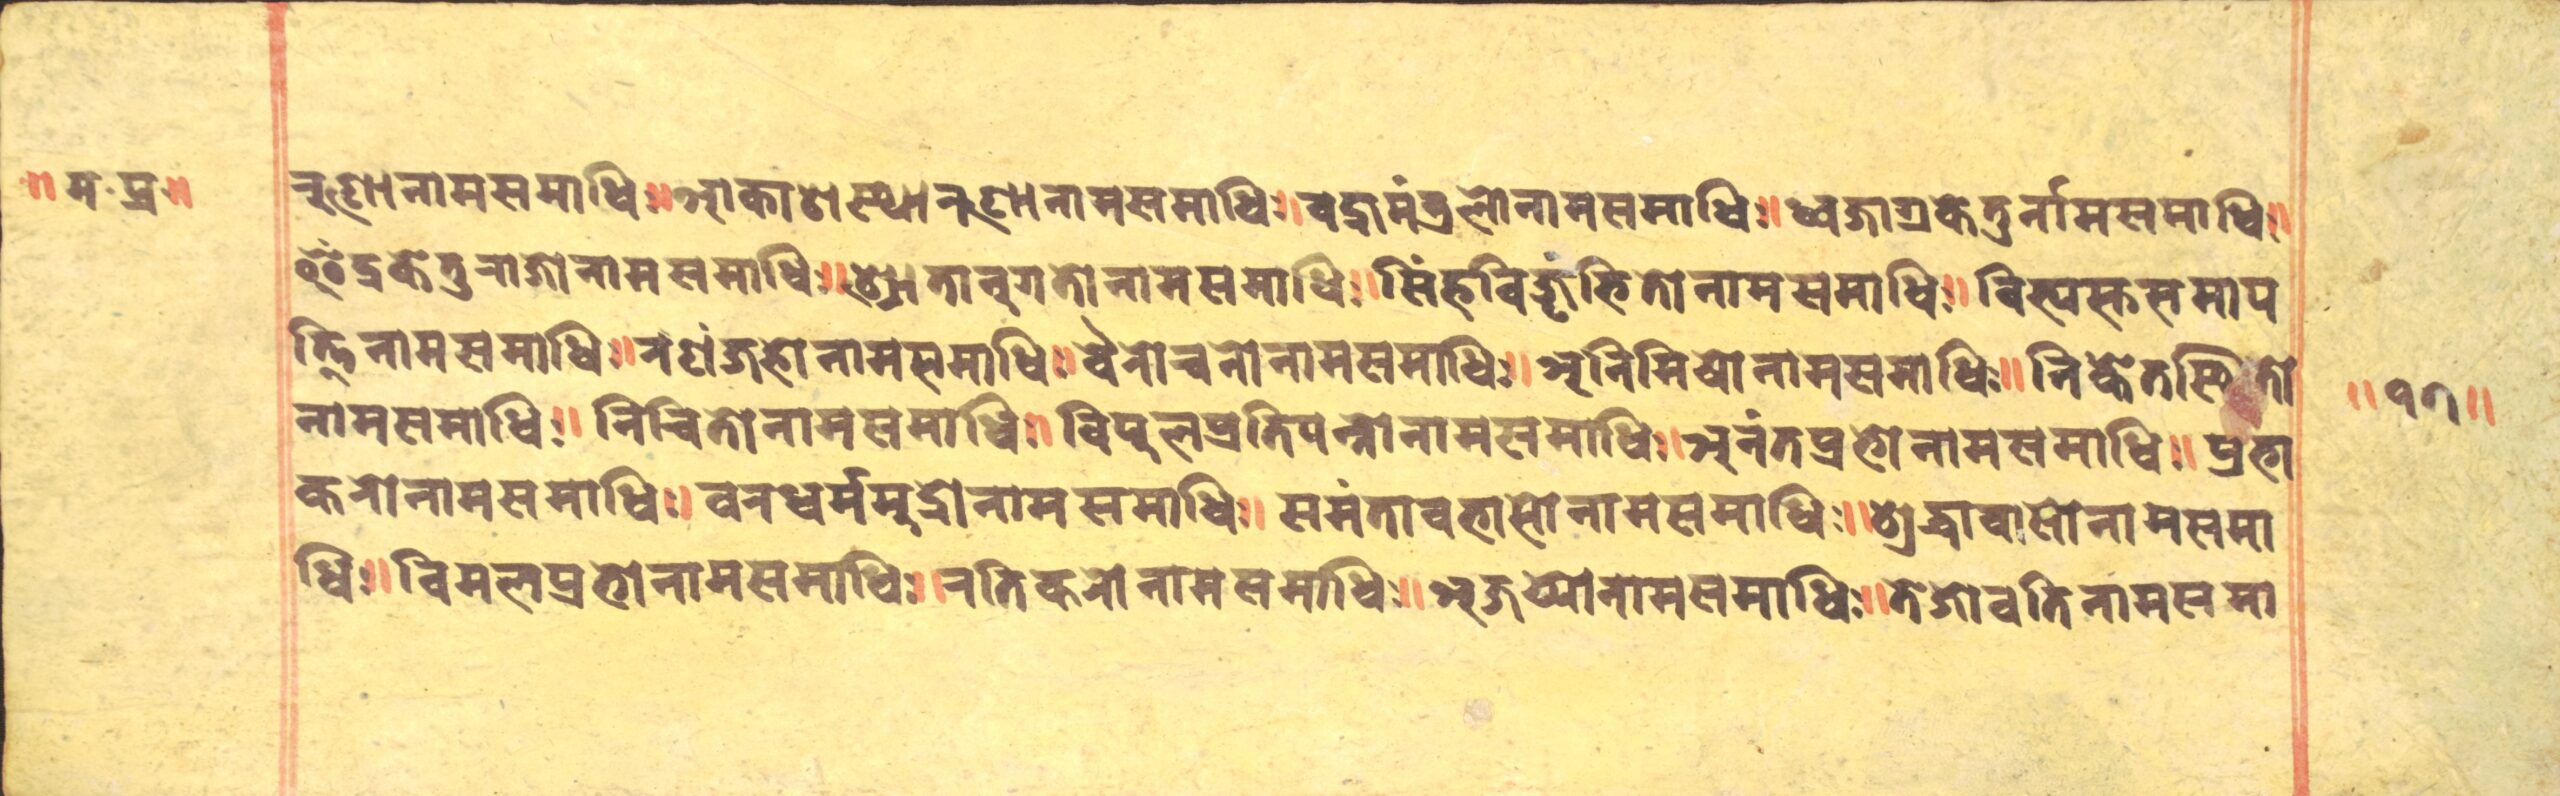 ॥म॰प्र॥
नुज्ञानामसमाधिः॥आकाशस्थानज्ञानामसमाधिः॥वज्रमंत्रलोनामसमाधिः॥ध्वजाग्रकेतुर्नामसमाधिः॥
इंद्रकेतुराजोनामसमाधिः॥श्रोतानुगतोनामसमाधिः॥सिंहविजृंभितोनामसमाधिः॥ समाप
त्तिनामसमाधिः॥रणंजहोनामसमाधिः॥वैरोचनोनामसमाधिः॥अनिमिषोनामसमाधिः॥निकेतस्थितो
नामसमाधिः॥निचितोनामसमाधिः॥विपुलप्रतिपन्नोनामसमाधिः॥अनंतप्रभोनामसमाधिः॥प्रभा
करोनामसमाधिः॥वरधर्ममुद्रोनामसमाधिः॥समंतावभासोनामसमाधिः॥शुद्धावासोनामसमा
धिः॥विमलप्रभोनामसमाधिः॥रतिकरोनामसमाधिः॥अजयोनामसमाधिः॥तेजोवतिनामसमा
॥१७॥